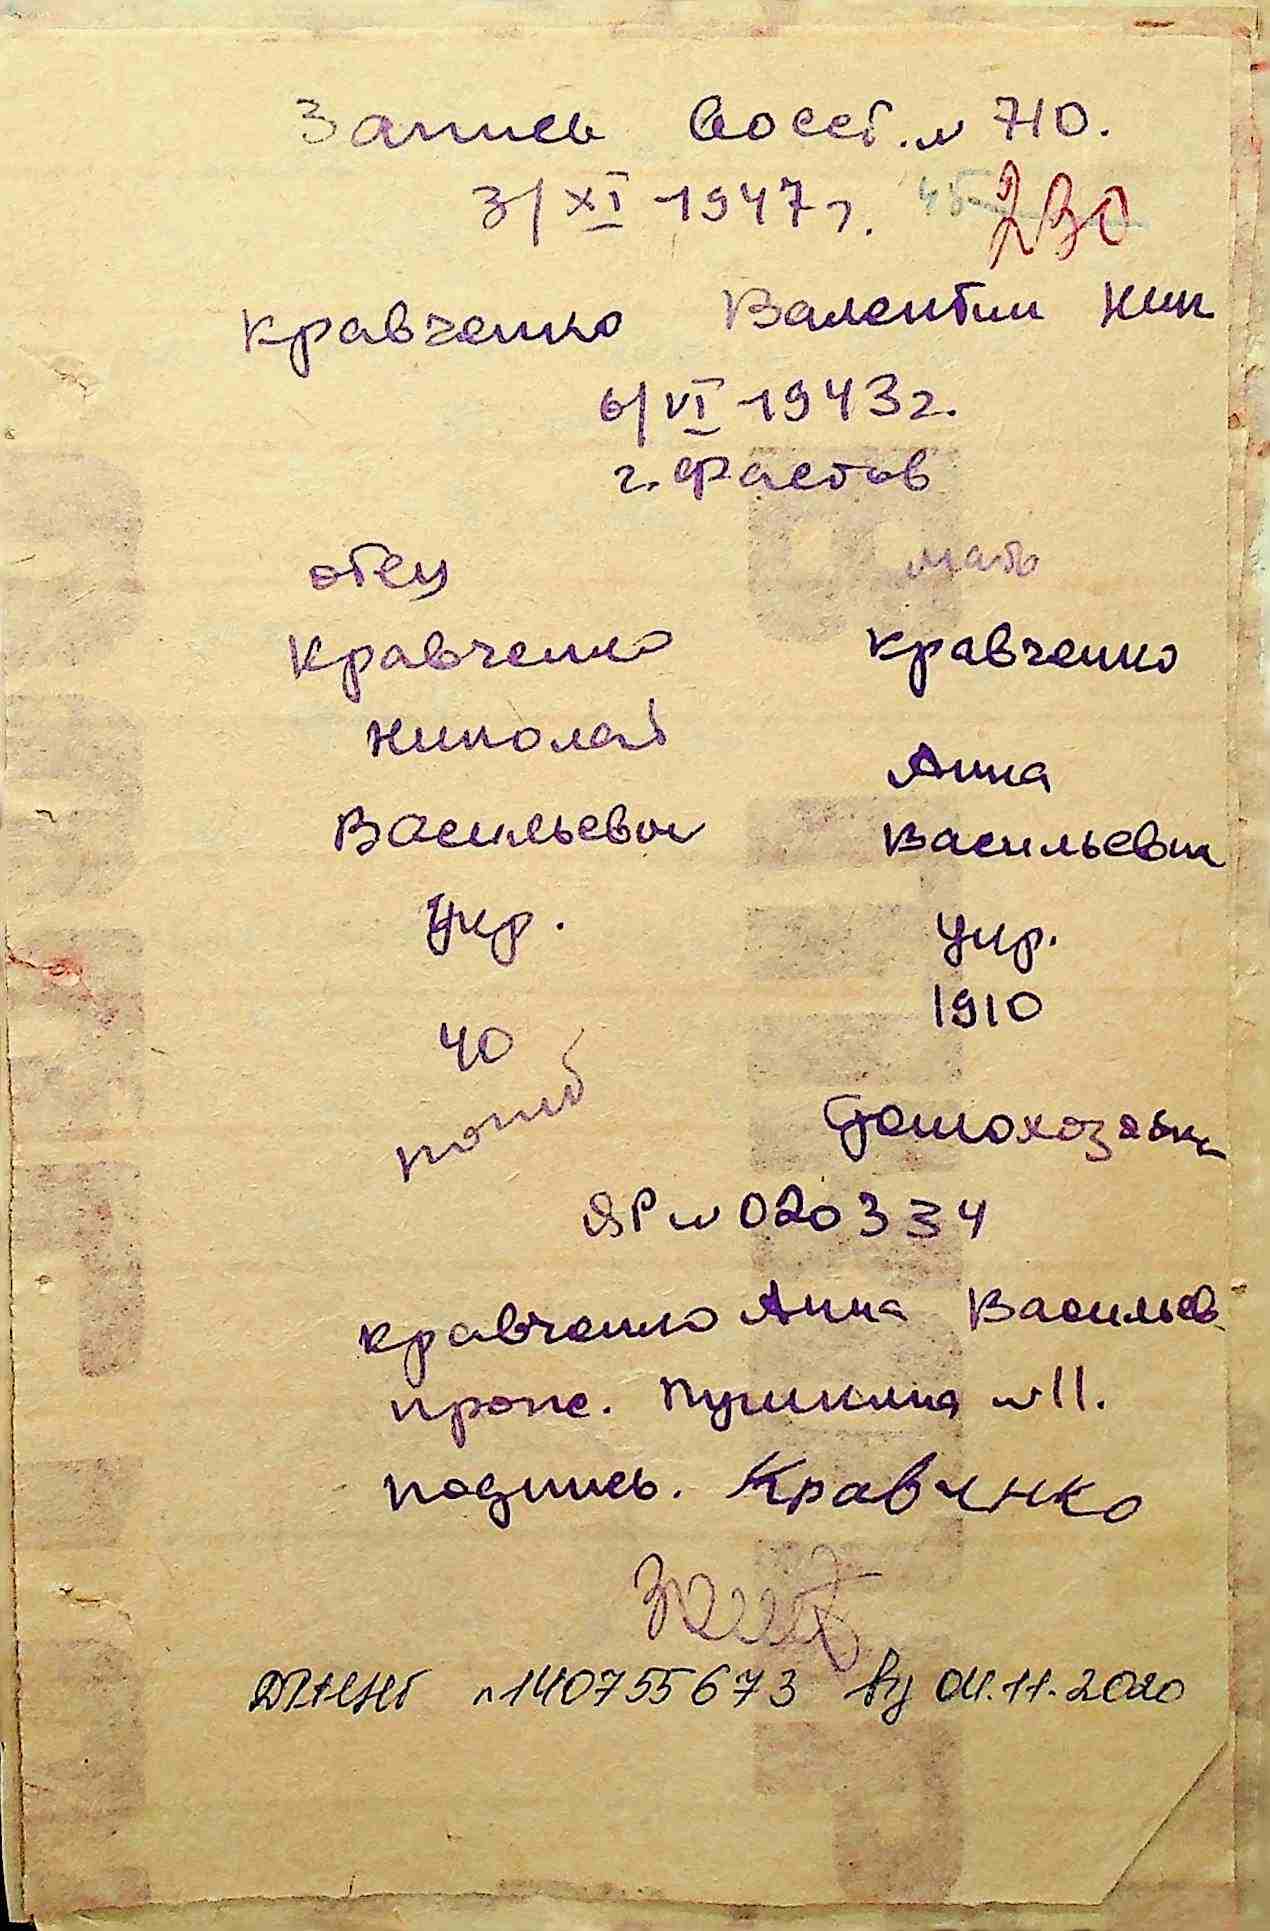 Запись восст. № 710.
3/XI 1947 г. 45 230
Кравченко Валентин Ник
6/VI 1943 г.
г. Фастов
отец мать
Кравченко Кравченко
Николай Анна
Васильевич Васильевна
Укр. Укр.
40 1910
погиб Домохозяйка
ЯР № 020334
Кравченко Анна Васильев
проп. Пушкина № 11.
подпись. Кравченко
№ 140755673 від 04.11.2020